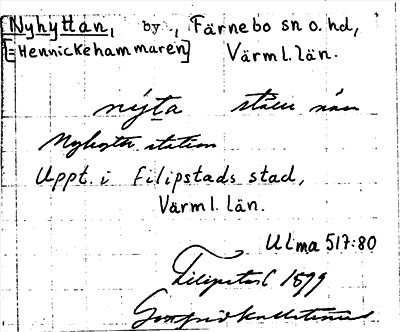 Nyhyttan, by, Färnebo sn o. hd,
[=Hennickehammaren] Värml. län.
nýta
Nyhytte station
Uppt. i Filipstads stad,
Värml. län.
ULma 517:80
Filipstad 1899
Gottfrid Kallstenius